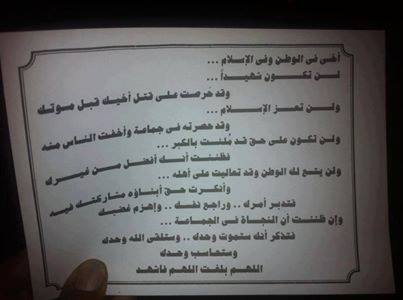 أخى فى الوطن وفى الإسلام ...
لن تكون شهيداً ...
وقد حَرصت على قتل أخيك قبل موتك
ولن تعز الإسلام ...
وقد حصرته فى جماعة وأخفت الناس منه
ولن تكون على حق قد مُلئت بالكبر ...
فظننت أنك أفضل من غيرك
ولن يتسع لك الوطن وقد تعاليت على أهله ...
وأنكرت حق أبناؤه مشاركتك فيه
فتدبر أمرك .. وراجع نفسك .. وإهزم غضبك
وإن ظننت أن النجاة فى الجماعة ...
فتذكر أنك ستموت وحدك .. وستلقى الله وحدك
وستحاسب وحدك
اللهم بلغت اللهم فاشهد